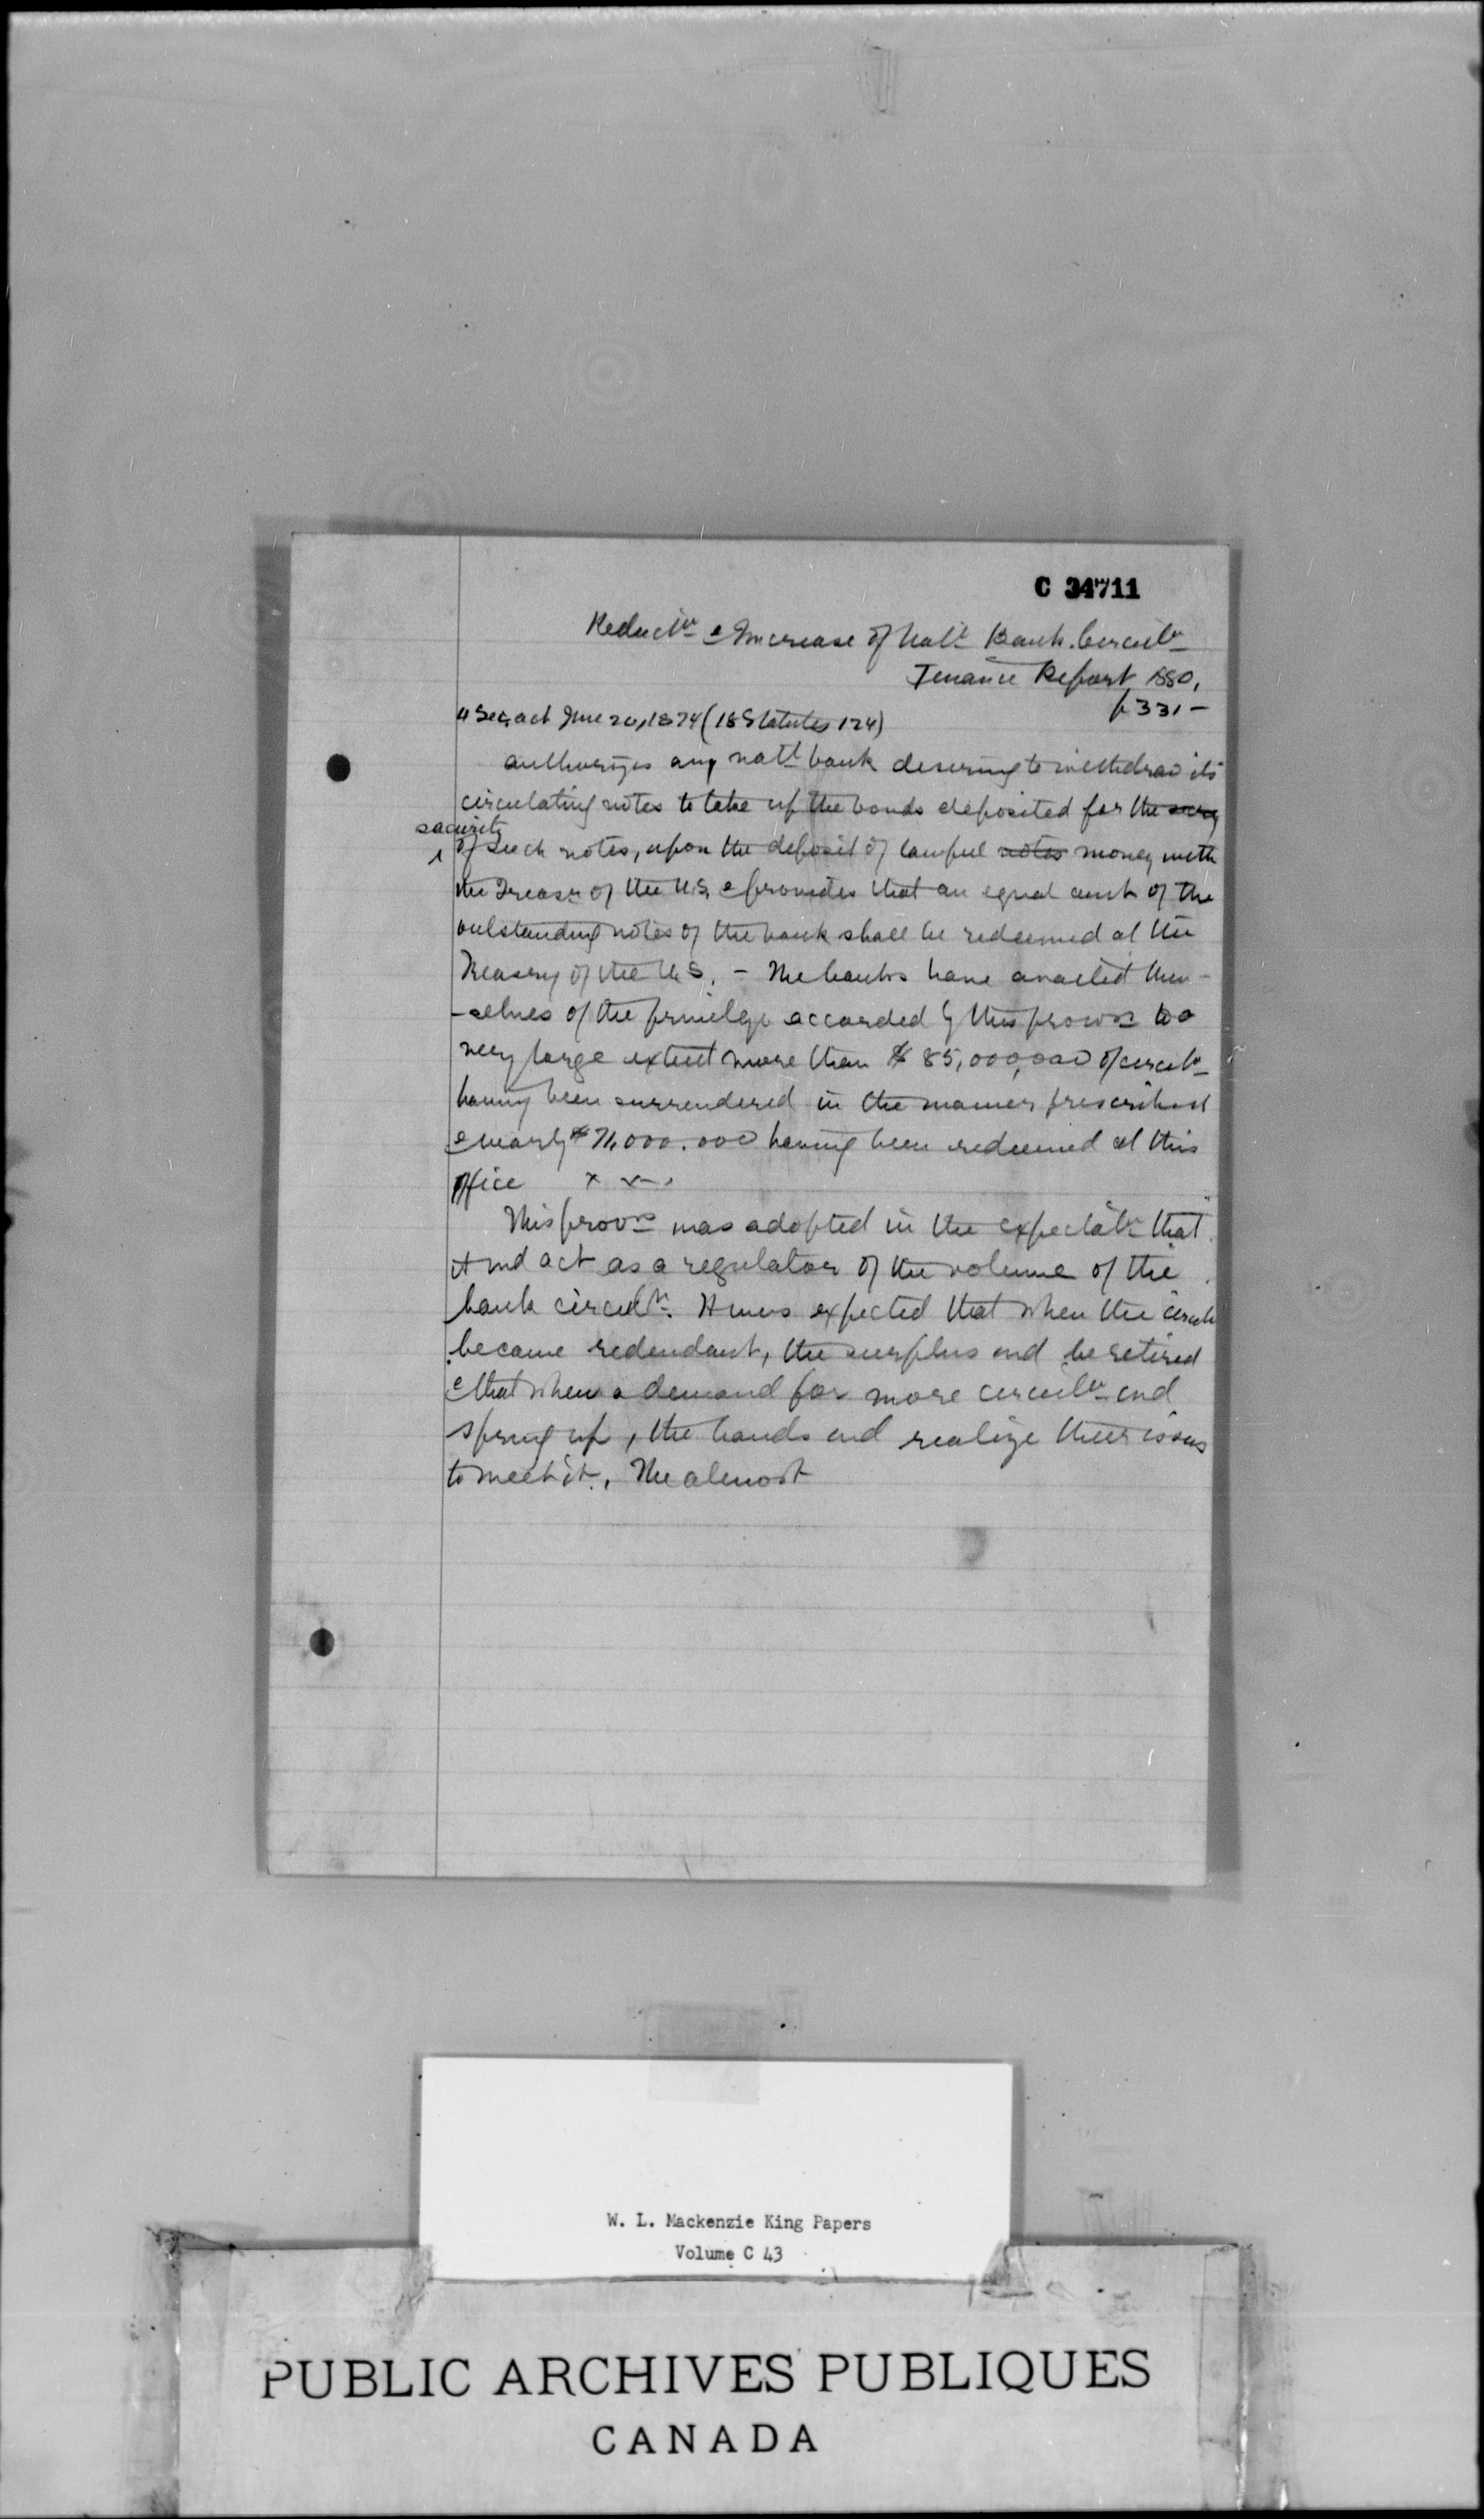 C 34711
Reductn & Increase of Natl Bank Circultn
Finance Report 1880,
p 331 -
4 Sec, act June 20, 1874 (18 Statutes 124)
authorizes any natl bank desiring to withdraw its
circulating notes to take up the bonds deposited for the
security
of such notes, upon the deposit of lawful notes money with
the Treasr of the U.S. & provides that an equal amt of the
outstanding notes of the bank shall be redeemed at the
Treasry of the U.S. - The banks have availed them-
-selves of the privilege accorded by this provsn to a
very large extent more than $ 85,000,000 of circultn
having been surrendered in the manner prescribed
& nearly $ 71,000.000 having been redeemed at this
office x x .
This provsn was adopted in the expectatn that
it wd act as a regulator of the volume of the
bank circultn. It was expected that when the circultn
became redundant, the surplus wd be retired
& that when a demand for more circultn wd
spring up, the banks wd realize their issues
to meet it. The almost
W. L. Mackenzie King Papers
Volume C 43
PUBLIC ARCHIVES PUBLIQUES
CANADA